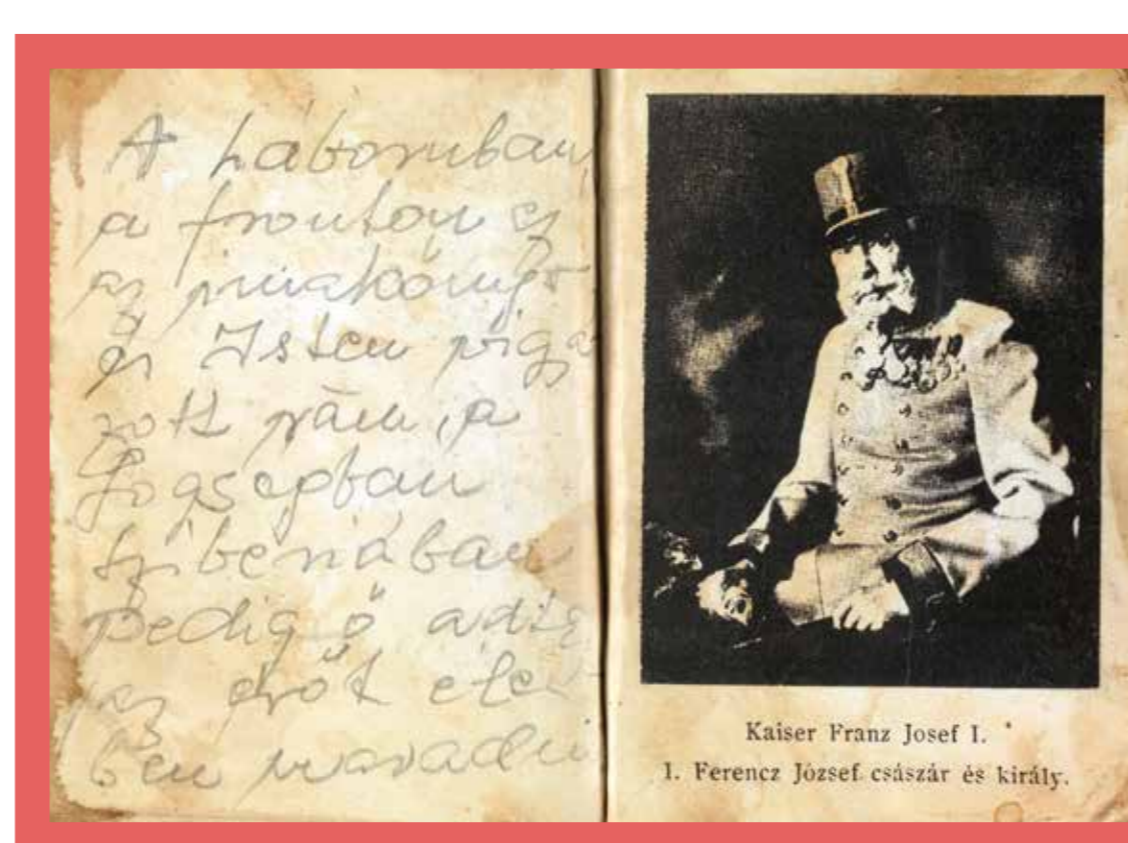 A háboruban
a fronton ez
az imakönyv
és Isten vigyá
zott rám, a
fogságban
Szibériában
pedig ő adta
az erőt élet
ben maradni
Kaiser Franz Josef I.
I. Ferencz József császár és király.